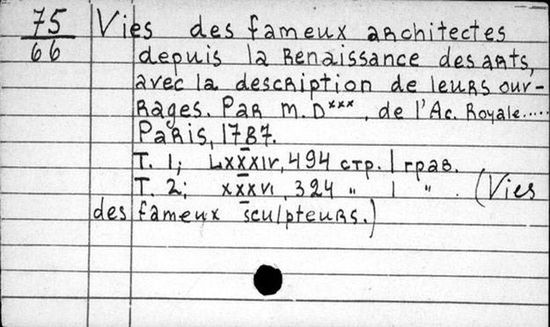 75 Vies des fameux architectes
66 depuis la Renaissance des arts,
avec la description de leurs ouv-
rages. Par M.D***, de l'Ac. Royale.....
Paris, 1787.
T. 1; LXXXIV, 494 стр. 1 грав.
T. 2; XXXVI, 324 " 1 " (Vies
des fameux sculpteurs.)